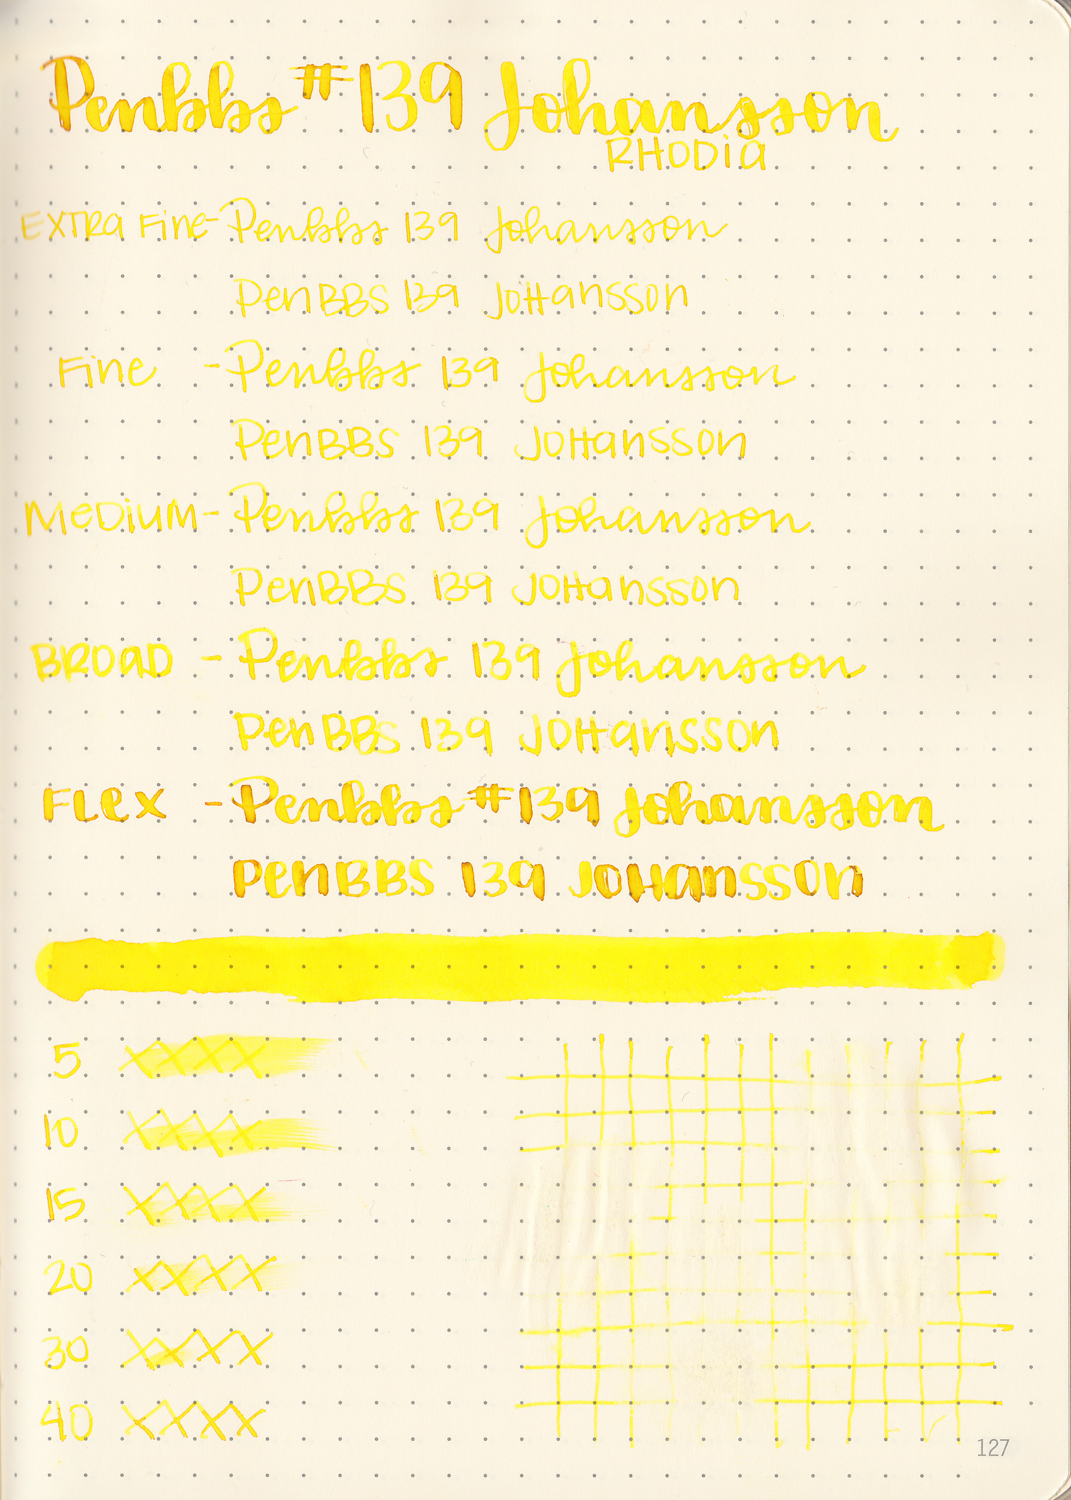 Penbbs #139 Johansson
RHODIA
EXTRA FINE - Penbbs 139 Johansson
PENBBS 139 JOHANSSON
FINE - Penbbs 139 Johansson
PENBBS 139 JOHANSSON
MEDIUM - Penbbs 139 Johansson
PENBBS 139 JOHANSSON
BROAD - Penbbs 139 Johansson
PENBBS 139 JOHANSSON
FLEX - Penbbs #139 Johansson
PENBBS 139 JOHANSSON
5 XXXX
10 XXXX
15 XXXX
20 XXXX
30 XXXX
40 XXXX
127